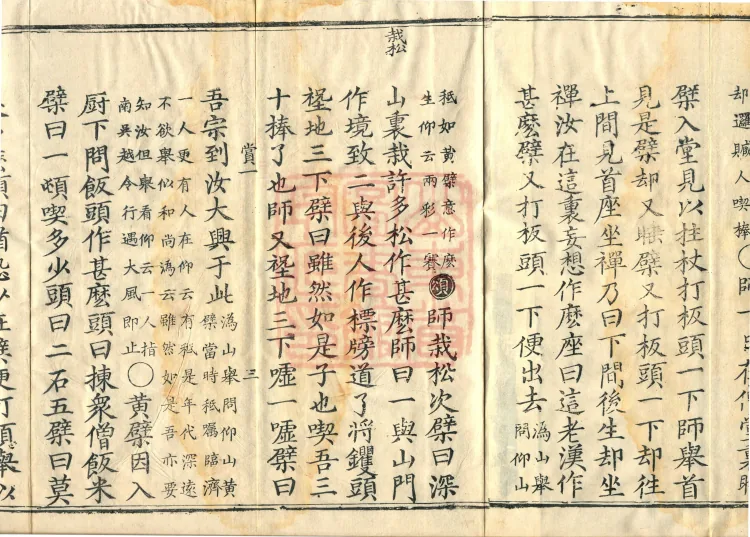 却邏賊人喫棒〇師一日在僧堂裏睡
檗入堂見以拄杖打板頭一下師舉首
見是檗却又睡檗又打板頭一下却往
上間見首座坐禪乃曰下間後生却坐
禪汝在這裏妄想作麽座曰這老漢作
甚麽檗又打板頭一下便出去
溈山舉
問仰山
秪如黃檗意作麽
生仰云兩彩一賽
師栽松次檗曰深
栽松
山裏栽許多松作甚麽師曰一與山門
作境致二與後人作標牓道了將钁頭
地三下檗曰雖然如是子也喫吾三
十捧了也師又地三下噓一噓檗曰
賞一 三
吾宗到汝大興于此
溈山舉問仰山黃
檗當時秪囑臨濟
一人更有人在仰云有秪是年代深遠
不欲舉似和尚溈云雖然如是吾亦要
知汝但舉看仰云一人指
南吳越令行遇大風即止
〇黃檗因入
厨下問飯頭作甚麽頭曰揀衆僧飯米
檗曰一頓喫多少頭曰二石五檗曰莫
頭曰猶恐少在檗便打頭舉以